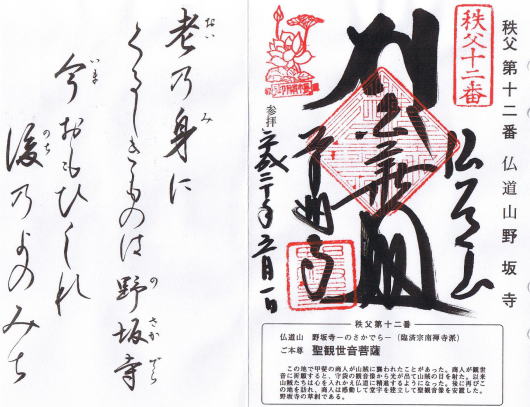 秩父 第十二番 仏道山 野坂寺
秩父十二番
仏道山
参拝
老乃身に
くるしきものは野坂寺
今おもひしれ
後乃よのみち
おい
み
の さか でら
いま
のち
秩父第十二番
仏道山 野坂寺－のさかでら－(臨済宗南禅寺派)
ご本尊 聖観世音菩薩
この地で甲斐の商人が山賊に襲われたことがあった。商人が観世
音に祈願すると、守袋の観音像から光が出て山賊の目を射た。以来
山賊たちは心を入れかえ仏道に精進するようになった。後に再びこ
の地を訪れ、商人は感動して堂宇を建立して聖観音像を安置した。
野坂寺の草創である。